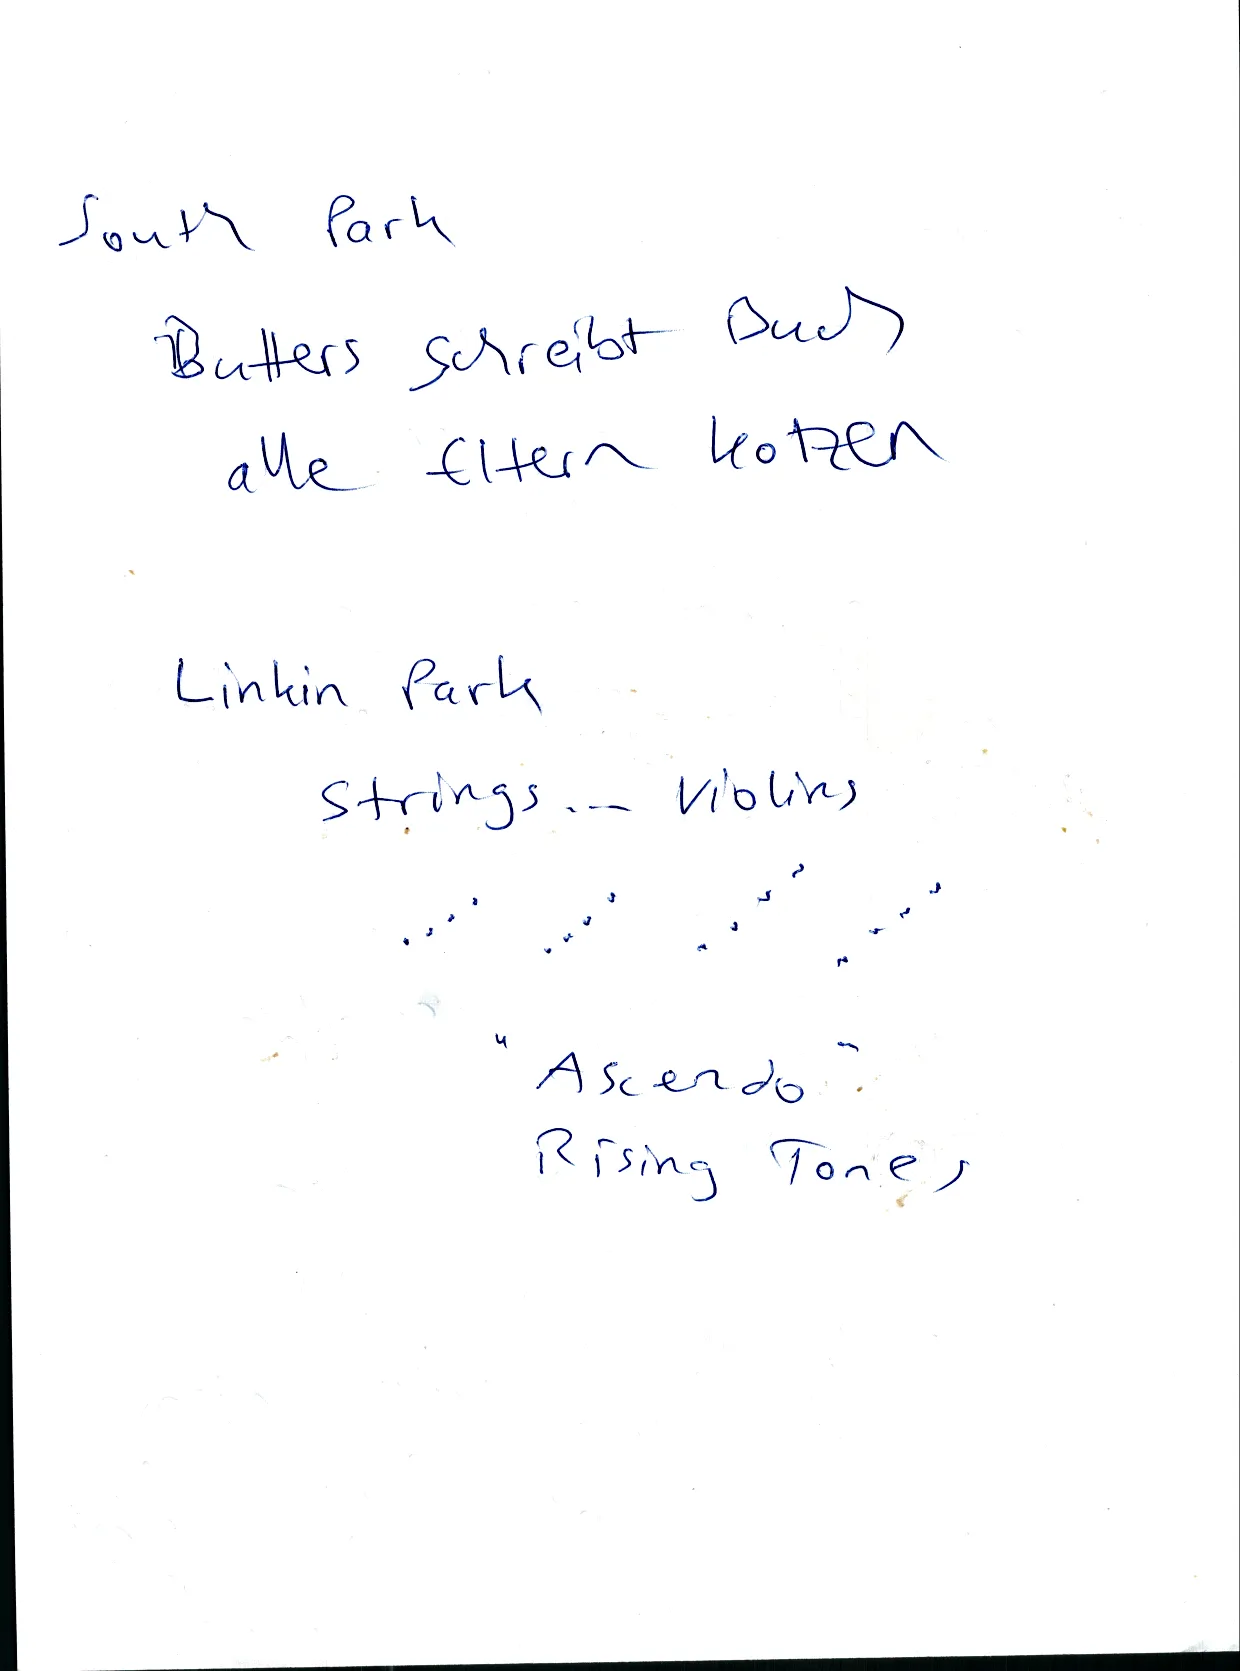 South Park
Butters schreibt Buch
alle Eltern kotzen
Linkin Park
Strings... Violins
"Ascendo"
Rising Tones